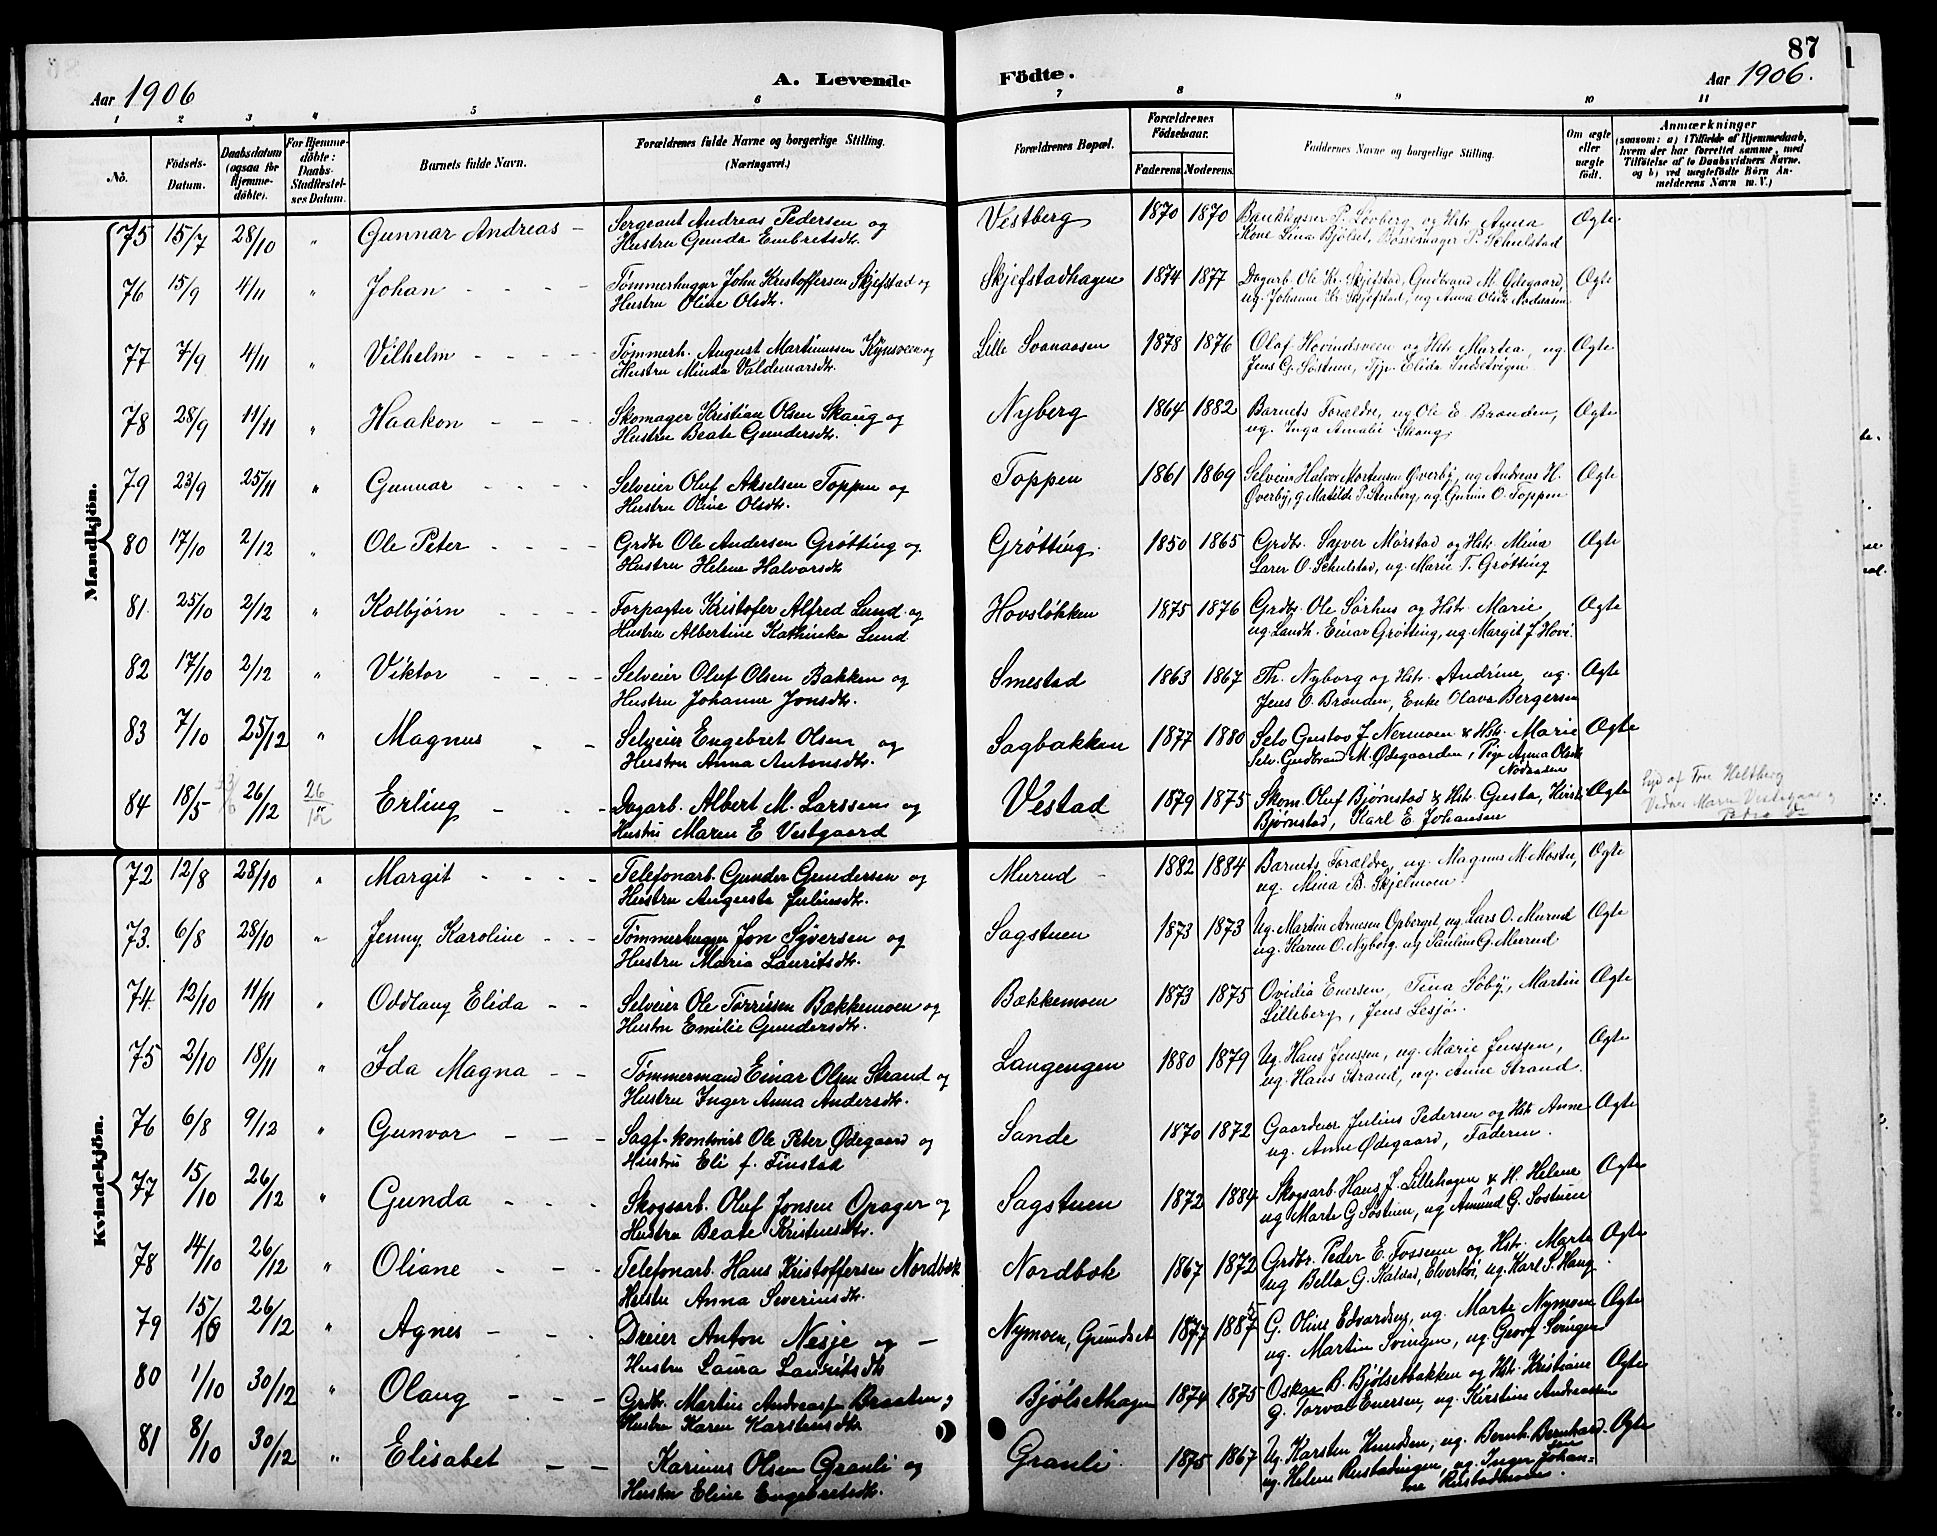 87
Aar 1906
A. Levende Födte.
Aar 1906.
1 2 3 4 5 6 7 8 9 10 11
No.
Födsels-Datum.
Daabsdatum (ogsaa for Hjemmedöbte).
For Hjemmedöbte: Daabs-Stadfæstelses Datum.
Barnets fulde Navn.
Forældrenes fulde Navne og borgerlige Stilling. (Næringsvei.)
Forældrenes Bopæl.
Forældrenes Födselsaar.
Faderens. Moderens.
Faddernes Navne og borgerlige Stilling.
Om ægte eller uægte födt.
Anmærkninger
(saasom: a) i Tilfælde af Hjemmedaab, hvem der har forrettet samme, med Tilföielse af to Daabsvidners Navne, og b) ved uægtefödte Börn Anmelderens Navn m. V.)
Mandkjön.
75 15/7 28/10 " Gunnar Andreas - Sergeant Andreas Pedersen og Vestberg 1870 1870 P. Løvberg og Hstr. Anna Ægte
Hustru Gunda Embretsdtr. Kone Lina Bjølset, P. Schulstad
76 15/9 4/11 " Johan - - - - Tømmerhugger John Kristoffersen Skjefstad og Skjefstadhagen 1874 1877 Dagarb. Ole Kr. Skjefstad, Gudbrand M. Ødegaard, Ægte
Hustru Oline Olsdtr. ug. Johanne Kr. Skjefstad, ug Anna Olsdtr
77 7/9 4/11 " Vilhelm - - - - Tømmerh. August Martinussen Kynsveen og Lille Svenaasen 1878 1876 Olaf Hovindsveen og Hstr. Martea, ug. Ægte
Hustru Minda Valdemarsdtr. Jens G. Søstuen, Pige Elida
78 28/9 11/11 " Haakon - - - Skomager Kristian Olsen Skaug og Nyberg 1864 1882 Barnets Forældre, ug Ole E. Brænden, Ægte
Hustru Beate Gundersdtr. ug. Inga Amalie Skaug.
79 23/9 25/11 " Gunnar - - - - Selveier Oluf Akselsen Toppen og Toppen 1861 1869 Selveier Halvor Mortensen Øverby, ug Andreas H. Ægte
Hustru Oline Olsdtr. Øverby, g. Matilde P. Stenberg, ug Gunnar O. Toppen
80 17/10 2/12 " Ole Peter - - - - Grdbr Ole Andersen Grøtting og Grøtting. 1850 1865 Grdbr. Syver Mørstad og Hstr. Mina Ægte
Hustru Helene Halvorsdtr O. Schulstad, ug. Marie T. Grøtting
81. 25/10 2/12 " Kolbjørn - - - - Forpagter Kristofer Alfred Lund og Hovsløkken 1875 1876 Grdbr. Ole Sørhus og Hstr. Marie Ægte
Hustru Albertine Kathinka Lund ug. Landh. Einar Grøtting, ug. Margit J. Hovi.
82 17/10 2/12 " Viktor - - - - Selveier Oluf Olsen Bakken og Smestad 1863 1867 Th. Nyborg og Hstr. Andrine, ug. Ægte
Hustru Johanne Jonsdtr. Jens O. Brænden, Enke Olava Bergersen
83 7/10 25/12 " Magnus - - Selveier Engebret Olsen og Sagbakken 1877 1880 Selv. Gustav J. Nermoen & Hstr. Marie Ægte
Hustru Anna Antonsdtr. Selv. Gudbrand M. Ødegaarden, Pige Anna Olsdtr
84 18/5 26/12 26/12 Erling - - Dagarb. Albert M. Larssen og Vestad 1879 1875 Skom. Oluf Bjørnstad & Hstr. Gusta, Kirsti Ægte
Hustru Maren E Vestgaard Bjørnstad, Karl E. Johansen
Kvindekjön.
72 12/8 28/10 " Margit - - - - Telefonarb. Gunder Gundersen og Murud - 1882 1884 Barnets Forældre, ug. Magnus M. Ægte
Hustru Augusta Juliusdtr. ug. Mina B. Skjelmoen.
73. 6/8 28/10 " Jenny Karoline - - - Tømmerhugger Jon Syversen og Sagstuen 1873 1873 Ug. Martin Arnesen Opberget ug. Lars O. Murud Ægte
Hustru Maria Lauritsdtr. ug. Karen O. Nyborg, ug Pauline G. Murud
74 12/10 11/11 " Oddlaug Elida - - Selveier Ole Torrissen Bækkemoen og Bækkemoen 1873 1875 Ovidia Enersen, Tina Søby, Martin Ægte
Hustru Emilie Gundersdtr. Lilleberg, Jens Lesjø.
75 2/10 18/11 " Ida Magna - - Tømmermand Einar Olsen Strand og Langengen 1880 1879 Ug. Hans Jenssen, ug. Marie Jenssen, Ægte
Hustru Inger Anna Andersdtr. ug. Hans Strand, ug. Anne Strand.
76 6/8 9/12 " Gunvor - - - Sagf.-kontorist Ole Peter Ødegaard og Sande 1870 1872 Gaardeier Julius Pedersen og Hstr. Anne Ægte
Hustru Eli f. Finstad ug. Anne Ødegaard, Faderen.
77 15/10 26/12 " Gunda - - - Skogsarb. Oluf Jonsen Opager og Sagstuen 1872 1884 Skogsarb. Hans J. Lillehagen & H. Helene Ægte
Hustru Beate Kristiansdtr. ug Marte G Søstuen, ug Amund G. Søstuen
78 14/10 26/12 " Oliane - - - Telefonarb. Hans Kristoffersen Nordbok Nordbok 1867 1872 Grdbr. Peder E. Fossum og Hstr. Marte Ægte
Hustru Anna Severinsdtr. ug Bella G. Kalstad, Elverhøi, ug. Karl P. Haug.
79 15/10 26/12 " Agnes - - - Dreier Anton Nesje og - Nymoen, Grundset 1877 1887 G. Oline Edvardsen, ug. Marte Nymoen Ægte
Hustru Laura Lauritsdtr ug. Martin Svingen, ug. Georg Svingen
80 1/10 30/12 " Olaug - - - Grdbr. Martin Andreassen Braaten og Bjølsethagen 1874 1875 Oskar B. Bjølsetbakken og Hstr. Kristiane Ægte
Hustru Karen Karstensdtr. g. Torval Enersen, ug. Kirstine Andreassen
81 8/10 30/12 " Elisabet - - Karinus Olsen Granli og Granli 1875 1867 Ug. Karsten Knudsen, ug. Bernh. Bernhardsen Ægte
Hustru Eline Engebretsdtr. ug. Helene Rustadengen, ug. Inger Johanne Rustadmoen.